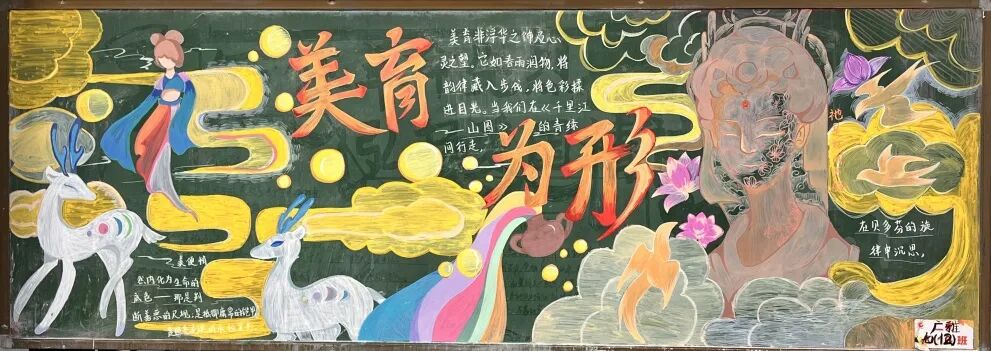 美育
为形
美育非浮华之饰乃心
灵之塑，它如春雨润物，将
韵律藏入步伐，将色彩揉
进目光。当我们在《千里江
山图》的青绿
间行走，
在贝多芬的旋
律中沉思，
美便悄
然内化为生命的
底色——那是判
断善恶的尺规，是抵御庸常的铠甲
广雅
七(12)班